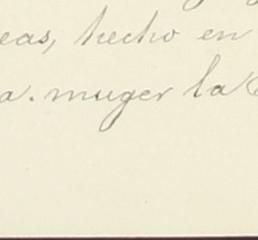 eas, hecho en
a. muger la